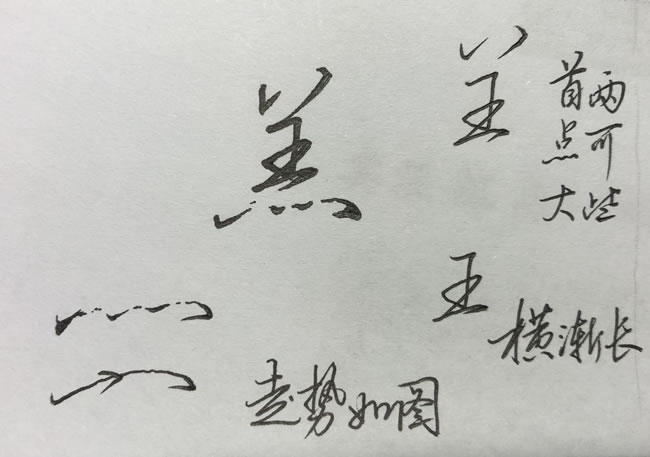 羔
首两
点可
大些
王
横渐长
走势如图